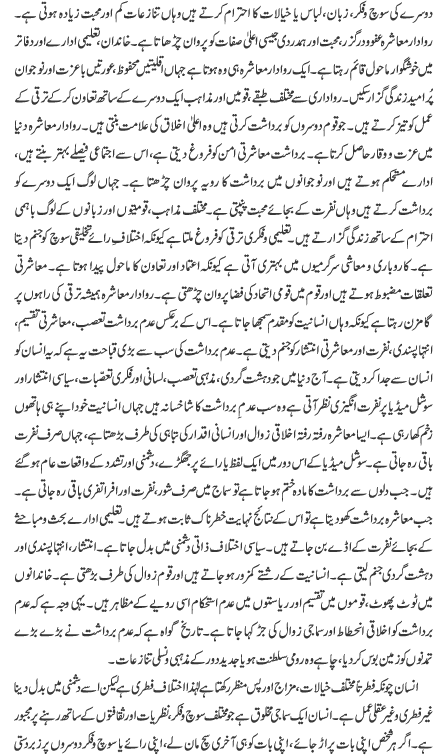 دوسرے کی سوچ و فکر، زبان، لباس یا خیالات کا احترام کرتے ہیں وہاں تنازعات کم اور محبت زیادہ ہوتی ہے۔
روادار معاشرہ عفو و درگزر، محبت اور ہمدردی جیسی اعلیٰ صفات کو پروان چڑھاتا ہے۔ خاندان، تعلیمی ادارے اور دفاتر
میں خوشگوار ماحول قائم رہتا ہے۔ ایک روادار معاشرہ ہی وہ ہوتا ہے جہاں اقلیتیں محفوظ، عورتیں باعزت اور نوجوان
پُرامید زندگی گزار سکیں۔ رواداری سے مختلف طبقے، قومیں اور مذاہب ایک دوسرے کے ساتھ تعاون کر کے ترقی کے
عمل کو تیز کرتے ہیں۔ جو قوم دوسروں کو برداشت کرتی ہیں وہ اعلیٰ اخلاق کی علامت بنتی ہیں۔ روادار معاشرہ دنیا
میں عزت و وقار حاصل کرتا ہے۔ برداشت معاشرتی امن کو فروغ دیتی ہے، اس سے اجتماعی فیصلے بہتر بنتے ہیں،
ادارے مستحکم ہوتے ہیں اور نوجوانوں میں برداشت کا رویہ پروان چڑھتا ہے۔ جہاں لوگ ایک دوسرے کو
برداشت کرتے ہیں وہاں نفرت کے بجائے محبت پنپتی ہے۔ مختلف مذاہب، قومیتوں اور زبانوں کے لوگ باہمی
احترام کے ساتھ زندگی گزارتے ہیں۔ تعلیمی و فکری ترقی کو فروغ ملتا ہے کیونکہ اختلافِ رائے تخلیقی سوچ کو جنم دیتا
ہے۔ کاروباری و معاشی سرگرمیوں میں بہتری آتی ہے کیونکہ اعتماد اور تعاون کا ماحول پیدا ہوتا ہے۔ معاشرتی
تعلقات مضبوط ہوتے ہیں اور قوم میں قومی اتحاد کی فضا پروان چڑھتی ہے۔ روادار معاشرہ ہمیشہ ترقی کی راہوں پر
گامزن رہتا ہے کیونکہ وہاں انسانیت کو مقدم سمجھا جاتا ہے۔ اس کے برعکس عدم برداشت تعصب، معاشرتی تقسیم،
انتہا پسندی، نفرت اور معاشرتی انتشار کو جنم دیتی ہے۔ عدم برداشت کی سب سے بڑی قباحت یہ ہے کہ یہ انسان کو
انسان سے جدا کر دیتی ہے۔ آج دنیا میں جو دہشت گردی، مذہبی تعصب، لسانی اور فکری تعصبات، سیاسی انتشار اور
سوشل میڈیا پر نفرت انگیزی نظر آتی ہے وہ سب عدمِ برداشت کا شاخسانہ ہیں جہاں انسانیت خود اپنے ہی ہاتھوں
زخم کھا رہی ہے۔ ایسا معاشرہ رفتہ رفتہ اخلاقی زوال اور انسانی اقدار کی تباہی کی طرف بڑھتا ہے، جہاں صرف نفرت
باقی رہ جاتی ہے۔ سوشل میڈیا کے اس دور میں ایک لفظ یا رائے پر جھگڑے، دشمنی اور تشدد کے واقعات عام ہو گئے
ہیں۔ جب دلوں سے برداشت کا مادہ ختم ہو جاتا ہے تو سماج میں صرف شور، نفرت اور افراتفری باقی رہ جاتی ہے۔
جب معاشرہ برداشت کھو دیتا ہے تو اس کے نتائج نہایت خطرناک ثابت ہوتے ہیں۔ تعلیمی ادارے بحث و مباحثے
کے بجائے نفرت کے اڈے بن جاتے ہیں۔ سیاسی اختلاف ذاتی دشمنی میں بدل جاتا ہے۔ انتشار، انتہا پسندی اور
دہشت گردی جنم لیتی ہے۔ انسانیت کے رشتے کمزور ہو جاتے ہیں اور قوم زوال کی طرف بڑھتی ہے۔ خاندانوں
میں ٹوٹ پھوٹ، قوموں میں تقسیم اور ریاستوں میں عدم استحکام اسی رویے کے مظاہر ہیں۔ یہی وجہ ہے کہ عدم
برداشت کو اخلاقی انحطاط اور سماجی زوال کی جڑ کہا جاتا ہے۔ تاریخ گواہ ہے کہ عدم برداشت نے بڑے بڑے
تمدنوں کو زمین بوس کر دیا، چاہے وہ رومی سلطنت ہو یا جدید دور کے مذہبی و نسلی تنازعات۔
انسان چونکہ فطرتاً مختلف خیالات، مزاج اور پس منظر رکھتا ہے لہٰذا اختلاف فطری ہے لیکن اسے دشمنی میں بدل دینا
غیر فطری و غیر عقلی عمل ہے۔ انسان ایک سماجی مخلوق ہے جو مختلف سوچ و فکر، نظریات اور ثقافتوں کے ساتھ رہنے پر مجبور
ہے۔ اگر ہر شخص اپنی بات پر اڑا جائے، اپنی بات کو ہی آخری سچ مان لے، اپنی رائے یا سوچ و فکر دوسروں پر زبردستی